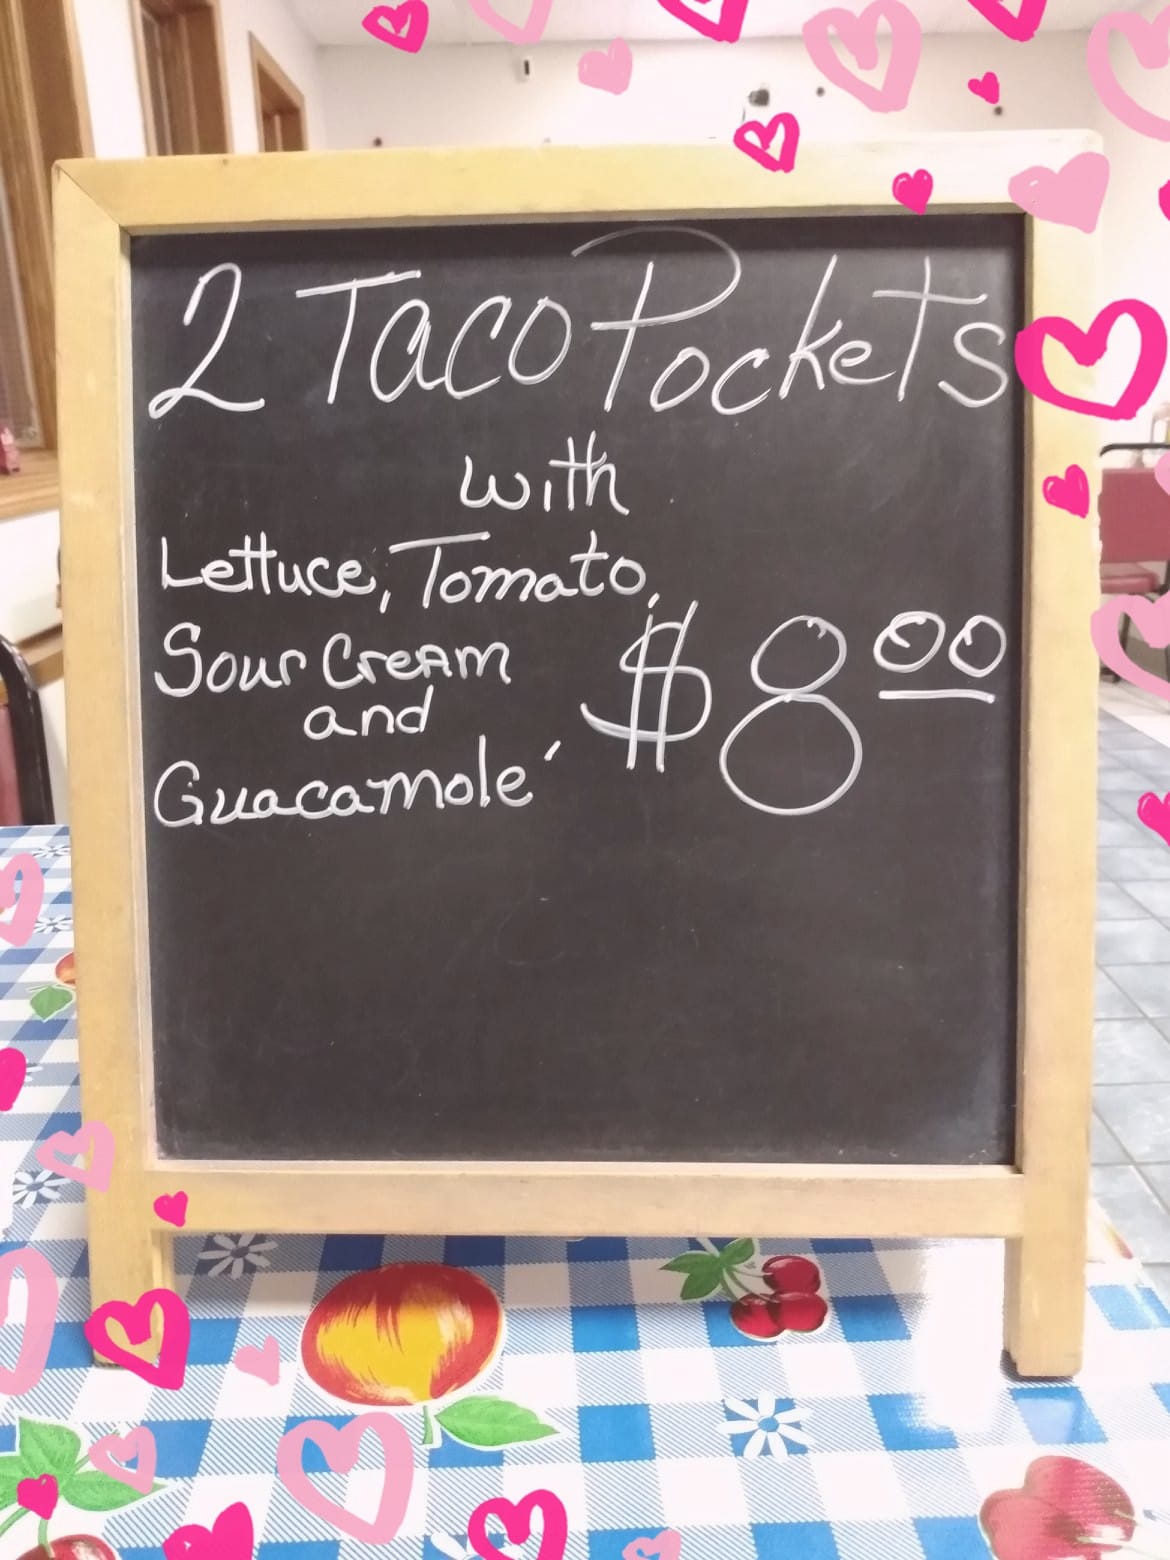 2 Taco Pockets
with
Lettuce, Tomato,
Sour Cream
and
Guacamole´
$8.00